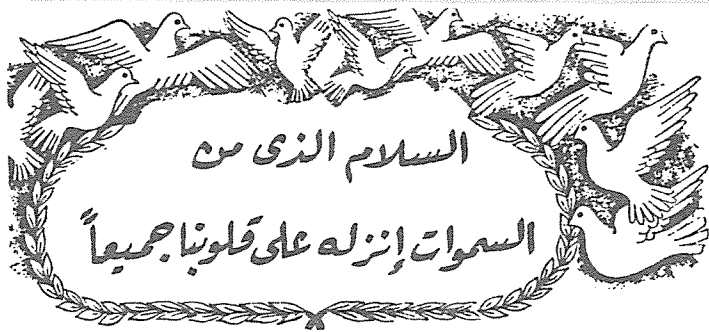 السلام الذى من
السموات إنزله على قلوبنا جميعاً